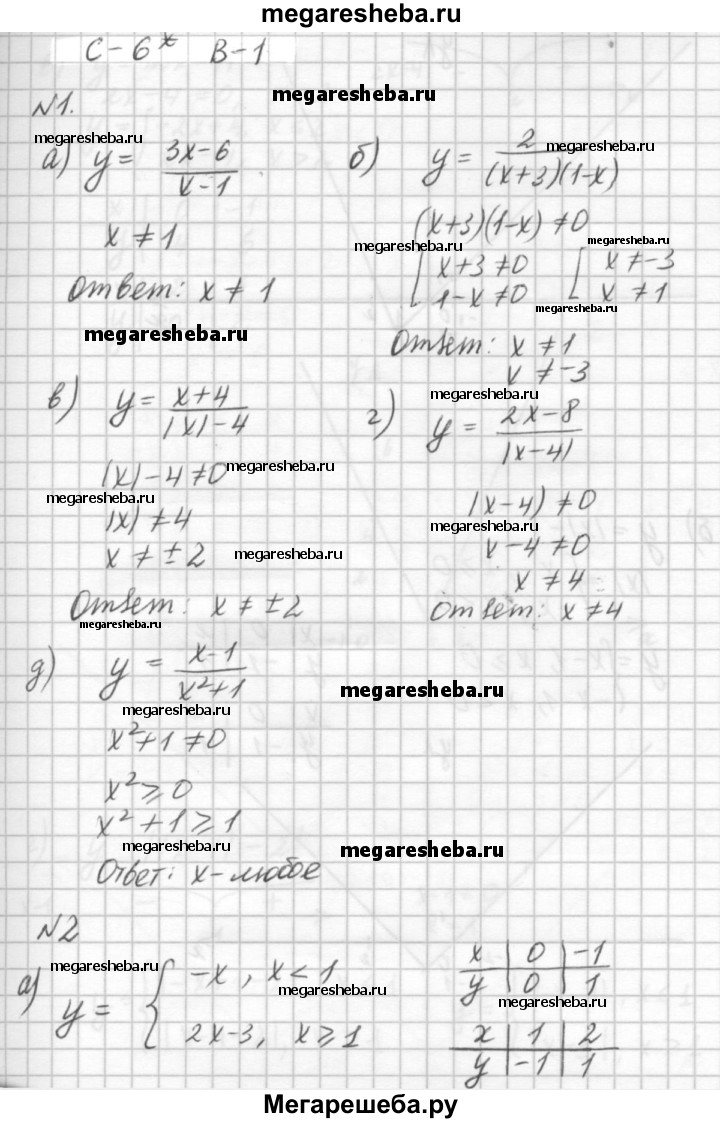 megaresheba.ru
С-6* В-1
megaresheba.ru
№1.
megaresheba.ru
а) y = (3x-6)/(x-1)
x ≠ 1
Ответ: x ≠ 1
megaresheba.ru
б) y = 2/((x+3)(1-x))
megaresheba.ru
(x+3)(1-x) ≠ 0
megaresheba.ru
megaresheba.ru
[ x+3 ≠ 0 [ x ≠ -3
1-x ≠ 0 x ≠ 1
megaresheba.ru
Ответ: x ≠ 1
x ≠ -3
в) y = (x+4)/(|x|-4)
|x|-4 ≠ 0
megaresheba.ru
megaresheba.ru
|x| ≠ 4
x ≠ ±2
megaresheba.ru
Ответ: x ≠ ±2
megaresheba.ru
г)
megaresheba.ru
y = (2x-8)/|x-4|
|x-4| ≠ 0
megaresheba.ru
x-4 ≠ 0
x ≠ 4
Ответ: x ≠ 4
д) y = (x-1)/(x²+1)
megaresheba.ru
megaresheba.ru
x²+1 ≠ 0
x² ⩾ 0
x²+1 ⩾ 1
megaresheba.ru
Ответ: x - любое
№2
megaresheba.ru
а) y = { -x, x < 1
megaresheba.ru
2x-3, x ⩾ 1
x | 0 | -1
y | 0 | 1
megaresheba.ru
x | 1 | 2
y | -1 | 1
Мегарешеба.ру